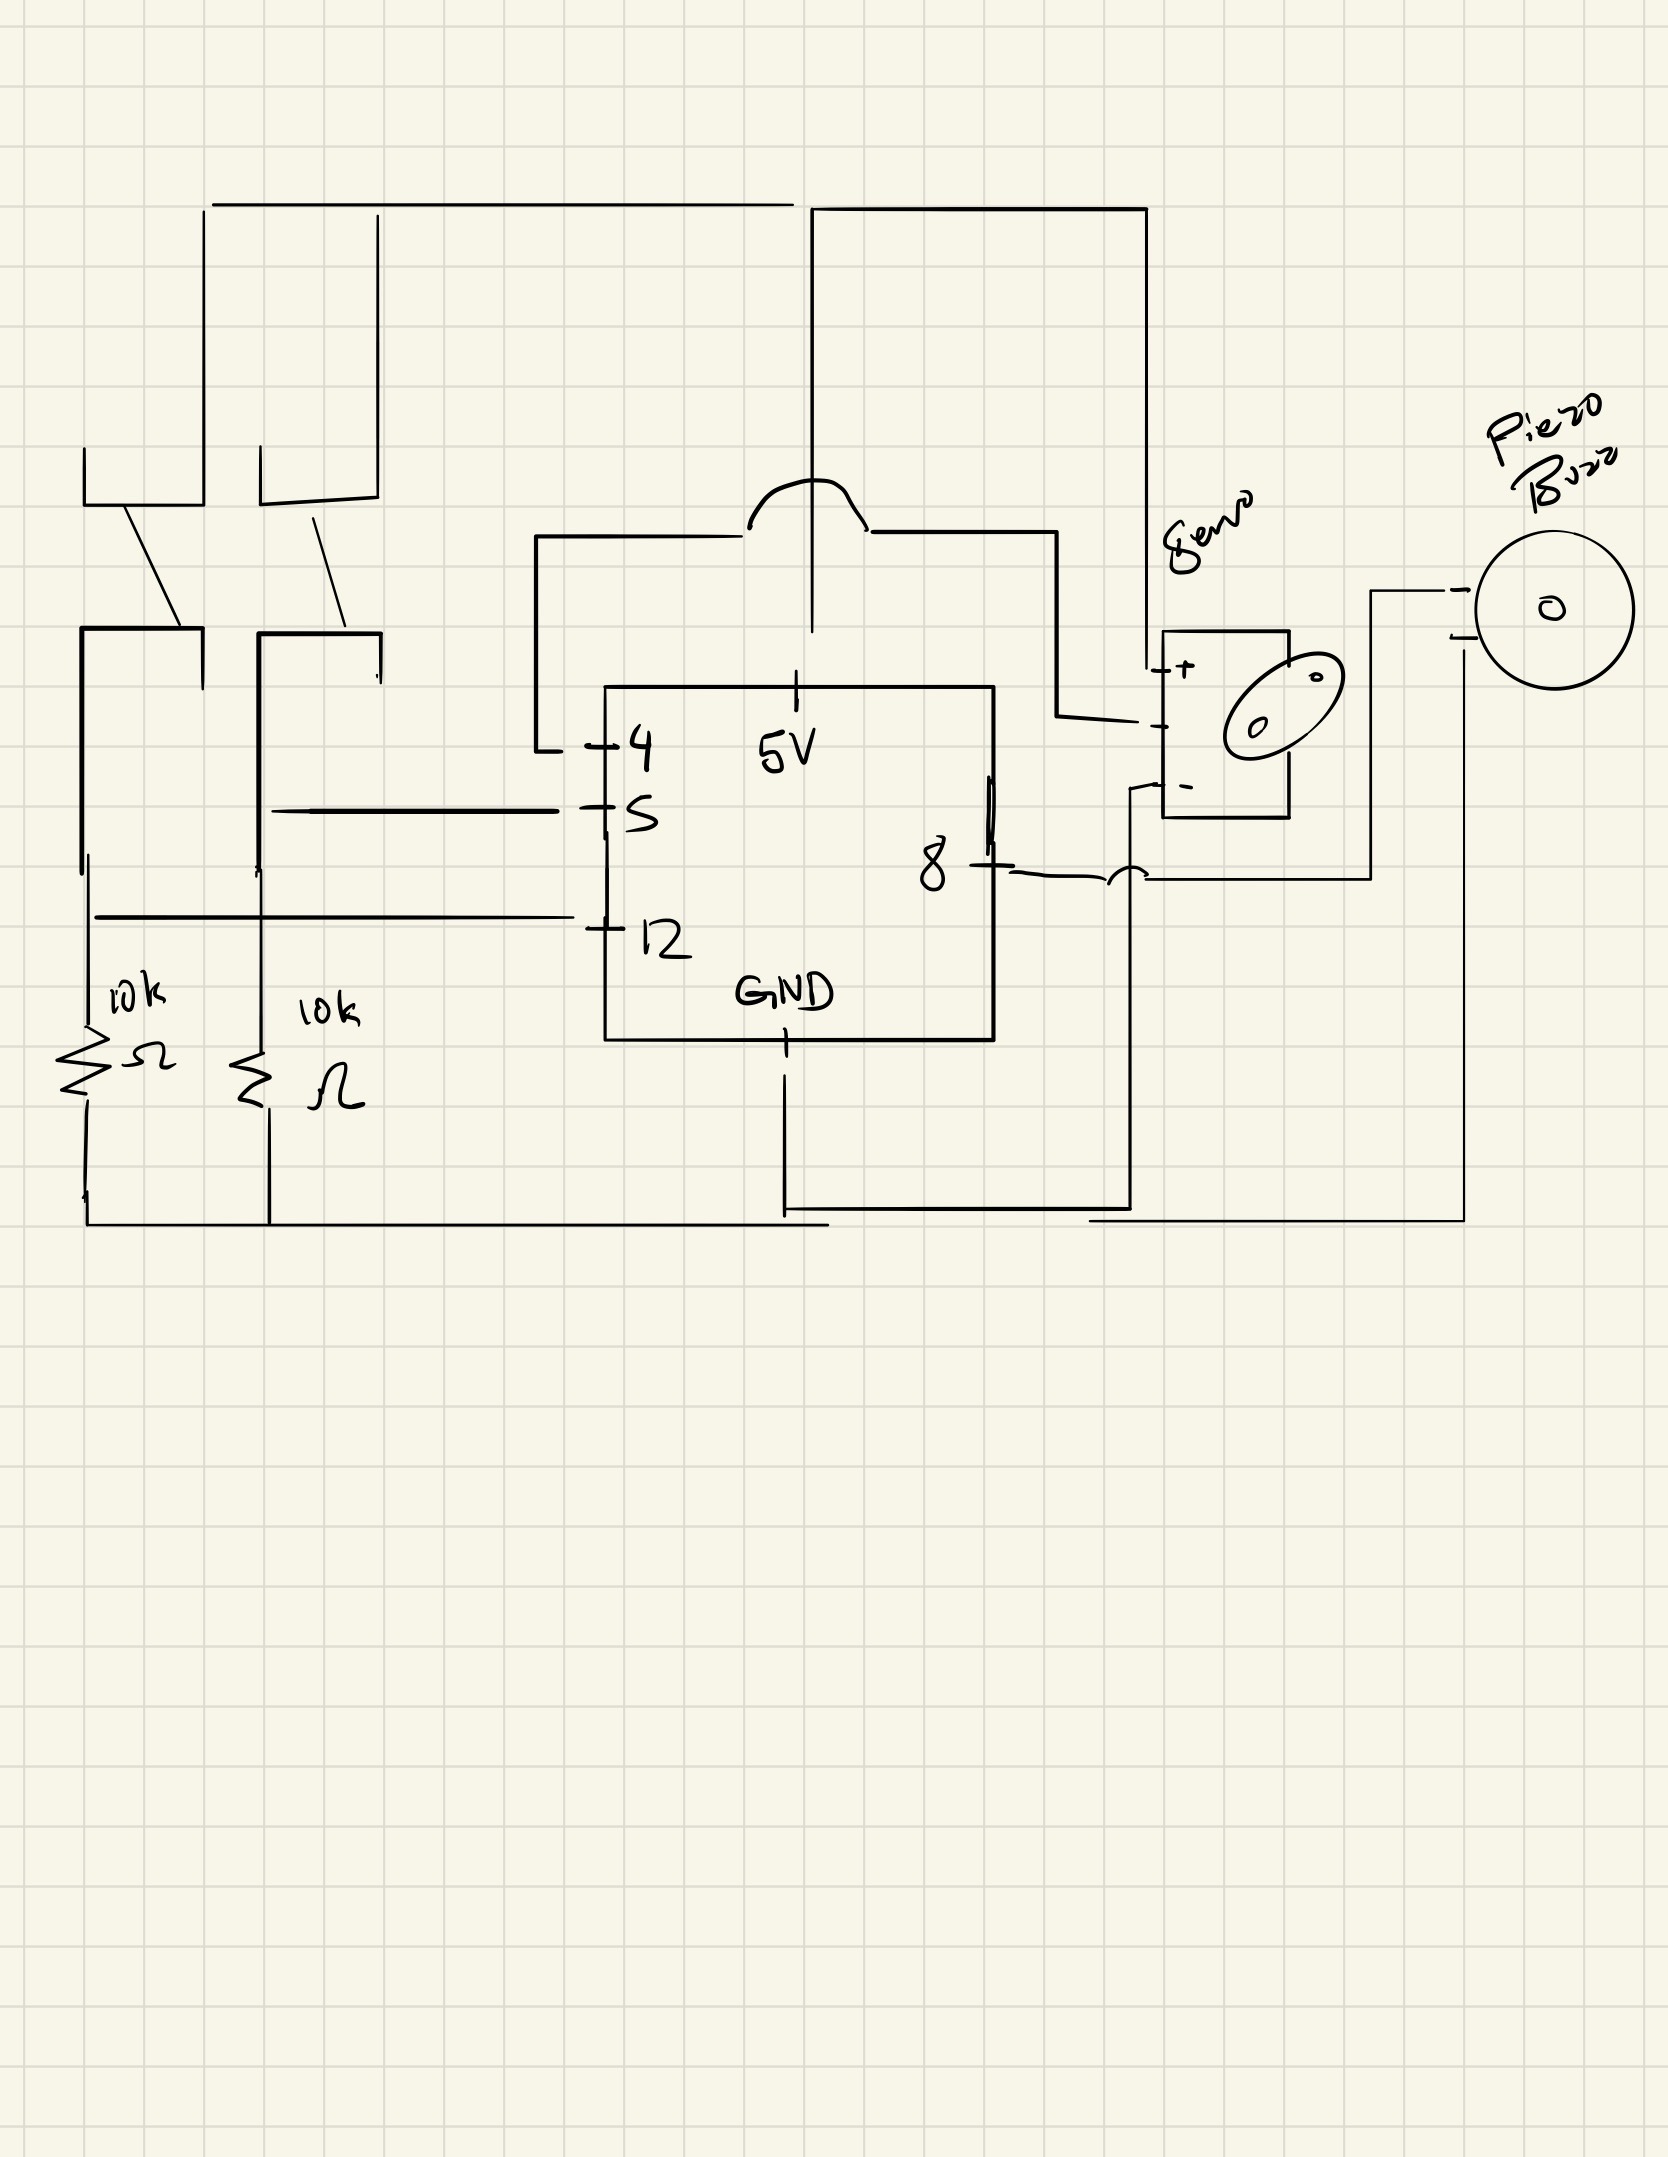 Piezo
Buzz
Servo
+
4
5V
5
-
8
12
GND
10k
Ω
10k
Ω